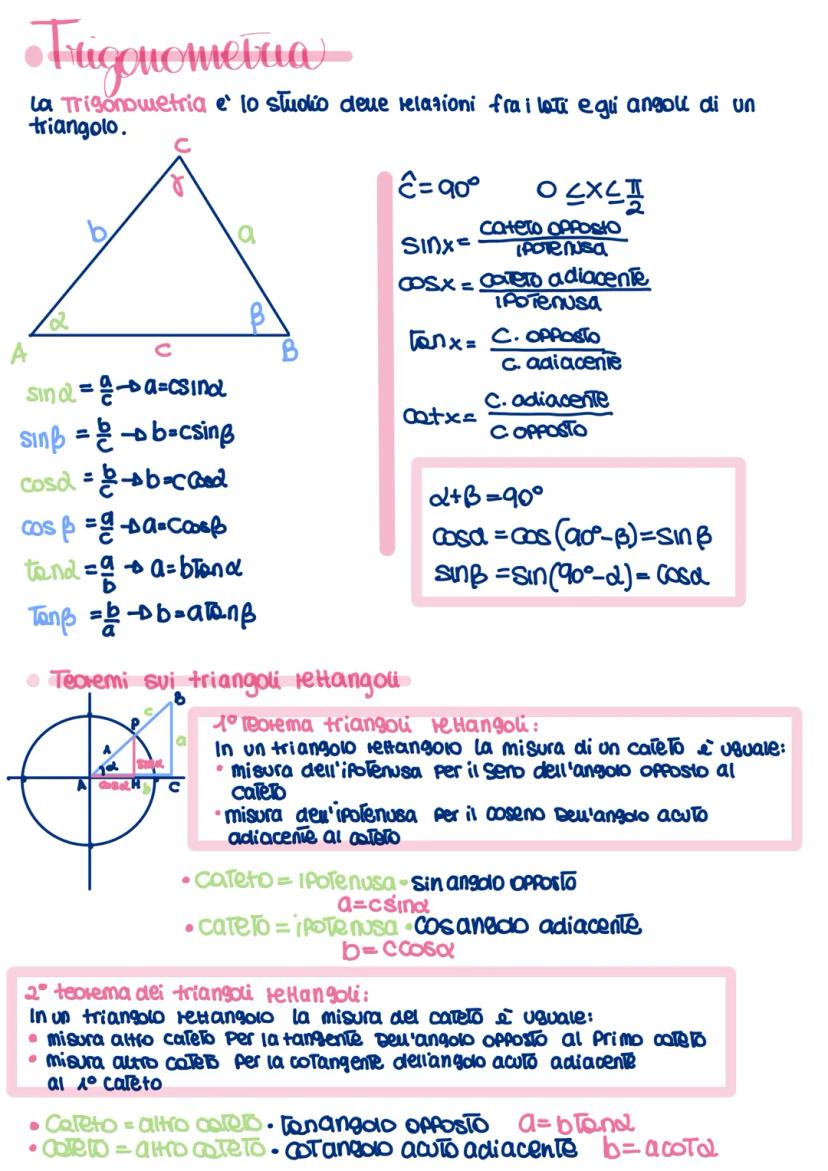 Trigonometria
La Trigonometria e' lo studio delle relazioni fra i lati e gli angoli di un
triangolo.
C
γ
b
a
α
β
A
c
B
sinα = a/c → a=csinα
sinβ = b/c → b=csinβ
cosα = b/c → b=ccosα
cosβ = a/c → a=ccosβ
tanα = a/b → a=btanα
Tanβ = b/a → b=atanβ
Ĉ=90° 0 ≤x≤ π/2
sinx= cateto opposto/ipotenusa
cosx = cateto adiacente/ipotenusa
Tanx= c. opposto/c. adiacente
cotx= c. adiacente/c opposto
α+β=90°
cosα =cos(90°-β)=sinβ
sinβ =sin(90°-α)= cosα
Teoremi sui triangoli rettangoli
B
c
P
a
1
α
sinα
A
cosα
H
b
C
1° Teorema triangoli rettangoli:
In un triangolo rettangolo la misura di un cateto è uguale:
• misura dell'ipotenusa per il seno dell'angolo opposto al
cateto
• misura dell'ipotenusa per il coseno dell'angolo acuto
adiacente al cateto
• cateto = ipotenusa • sin angolo opposto
a=csinα
• cateto = ipotenusa • cos angolo adiacente
b= ccosα
2° teorema dei triangoli rettangoli:
In un triangolo rettangolo la misura del cateto è uguale:
• misura altro cateto per la tangente dell'angolo opposto al primo cateto
• misura altro cateto per la cotangente dell'angolo acuto adiacente
al 1° cateto
• cateto = altro cateto • tanangolo opposto a=btanα
• cateto = altro cateto • cotangolo acuto adiacente b= acotα